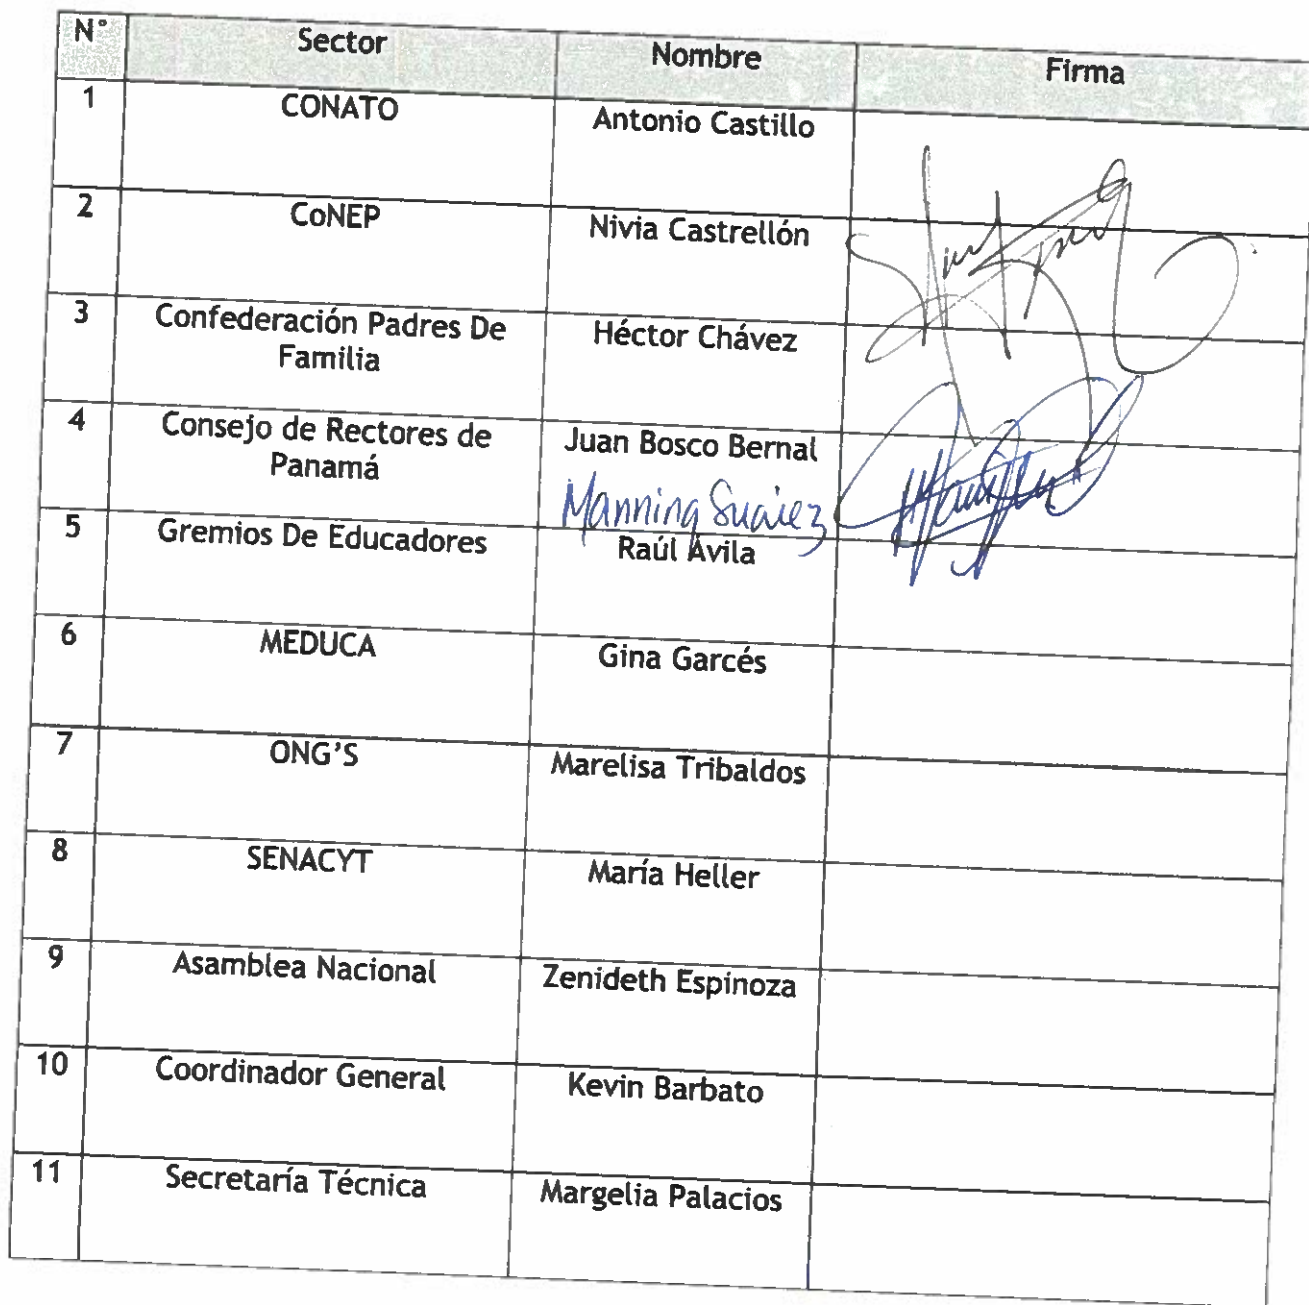 N° Sector Nombre Firma
1 CONATO Antonio Castillo
2 CoNEP Nivia Castrellón
3 Confederación Padres De Héctor Chávez
Familia
4 Consejo de Rectores de Juan Bosco Bernal
Panamá
Manning Suárez
5 Gremios De Educadores Raúl Ávila
6 MEDUCA Gina Garcés
7 ONG'S Marelisa Tribaldos
8 SENACYT María Heller
9 Asamblea Nacional Zenideth Espinoza
10 Coordinador General Kevin Barbato
11 Secretaría Técnica Margelia Palacios